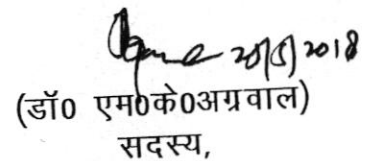 28/5/2018
(डॉ0 एम0के0अग्रवाल)
सदस्य,